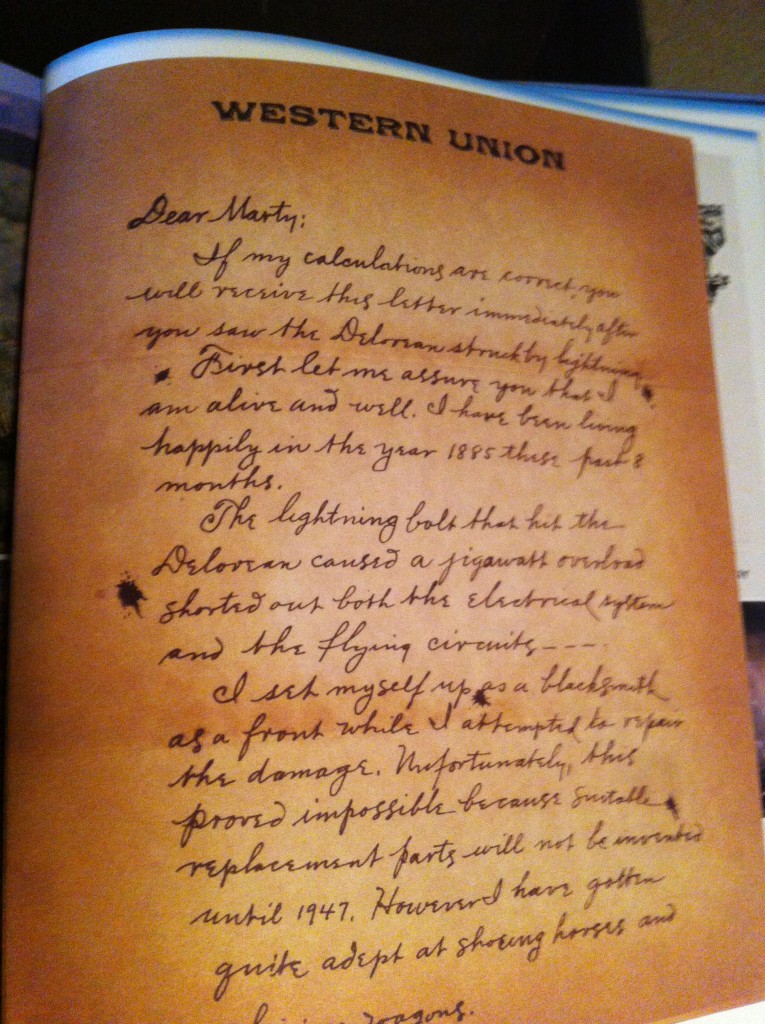 WESTERN UNION
Dear Marty:
If my calculations are correct, you
will receive this letter immediately after
you saw the Delorean struck by lightning.
First let me assure you that I
am alive and well. I have been living
happily in the year 1885 these past 8
months.
The lightning bolt that hit the
Delorean caused a jigawatt overload
shorted out both the electrical system
and the flying circuits----
I set myself up as a blacksmith
as a front while I attempted to repair
the damage. Unfortunately, this
proved impossible because suitable
replacement parts will not be invented
until 1947. However I have gotten
quite adept at shoeing horses and
wagons.